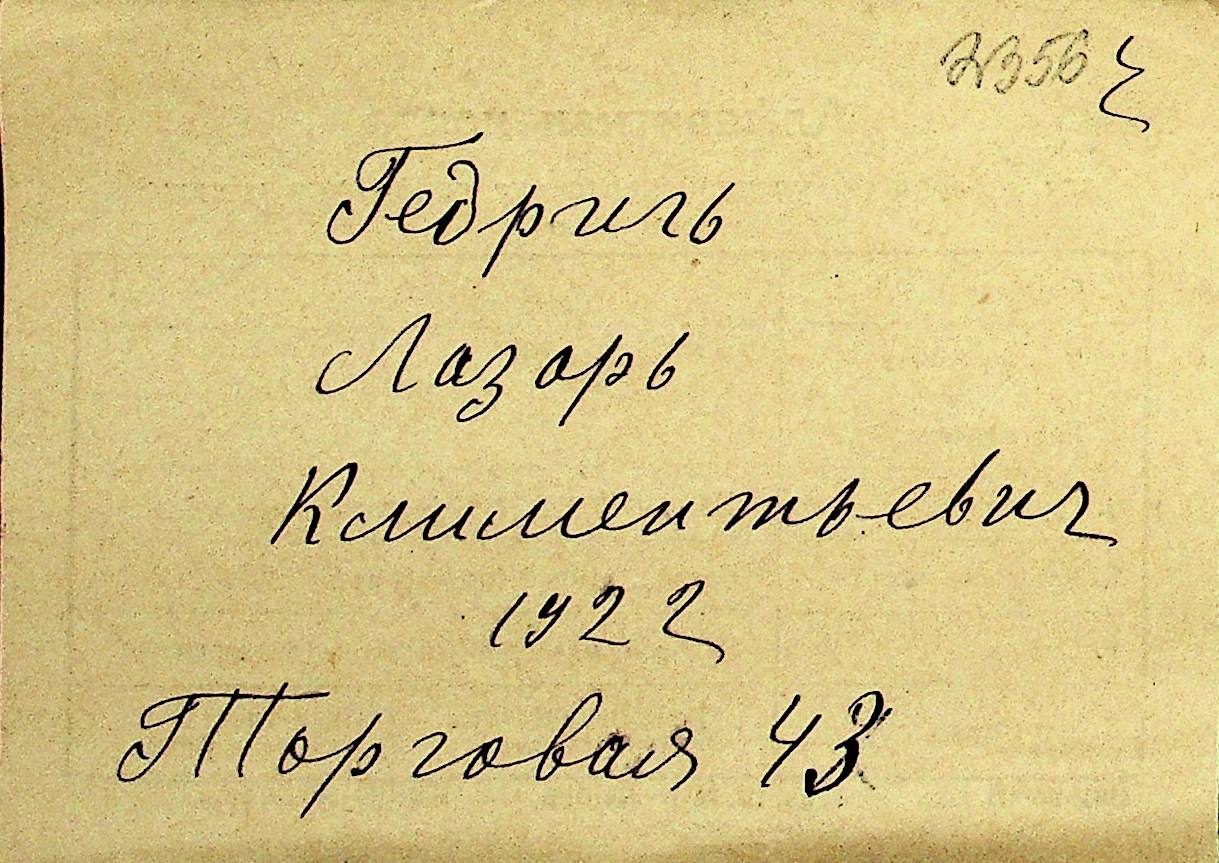 2356
Гедриль
Лазарь
Климентьевич
1922
Торговая 43